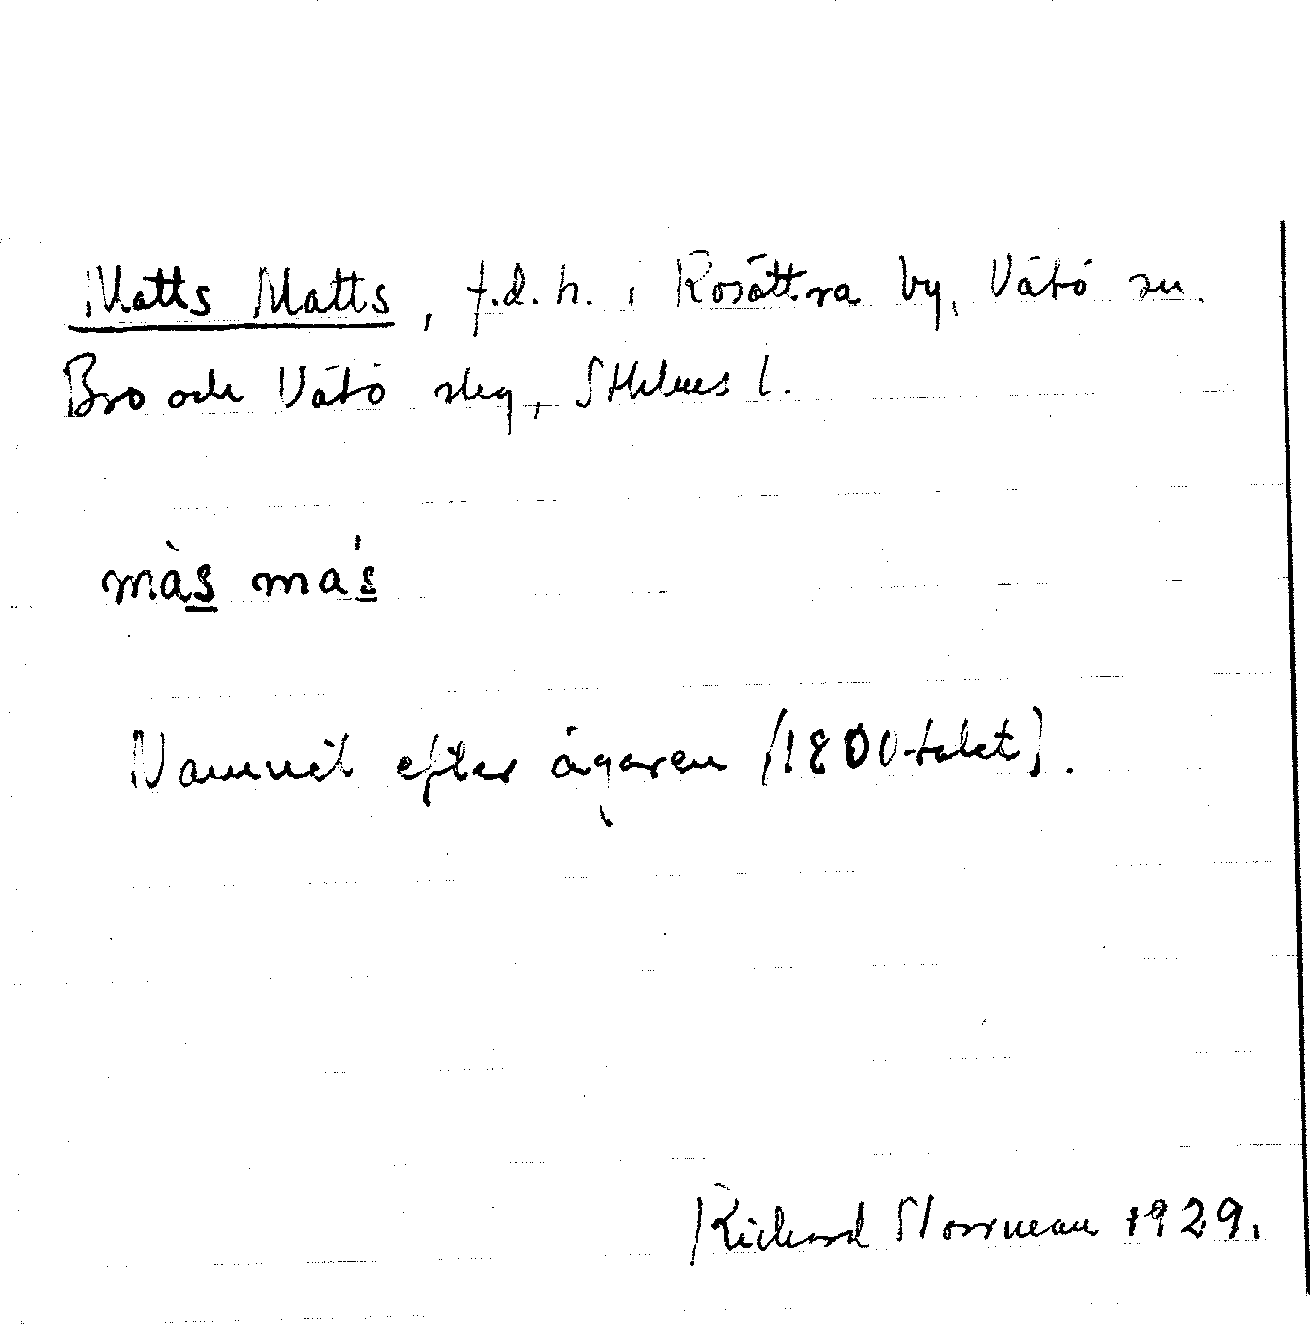 Matts Matts, f.d. h. i Rosättra by, Vätö sn.
Bro och Vätö slg, Sthlms l.
màs má's
Namnet efter ägaren (1800-talet).
Richard Norrman 1929.